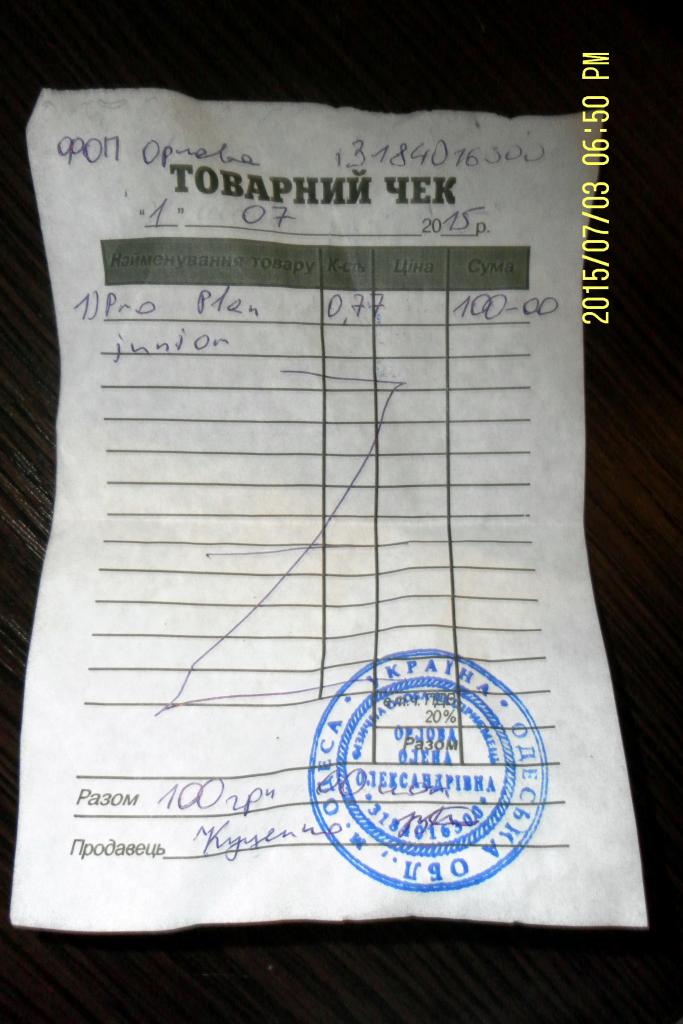 ФОП Орлова 3184016300
ТОВАРНИЙ ЧЕК
"1" 07 2015 р.
Найменування товару К-сть Ціна Сума
1) Pro Plan 0,77 100-00
junior
в т.ч. ПДВ
20%
Разом
Разом 100 грн 00 коп
Продавець Куценко
УКРАЇНА • ОДЕСЬКА ОБЛ., М. ОДЕСА •
ФІЗИЧНА ОСОБА-ПІДПРИЄМЕЦЬ
ОРЛОВА
ОЛЕНА
ОЛЕКСАНДРІВНА
* 3184016300 *
2015/07/03 06:50 PM